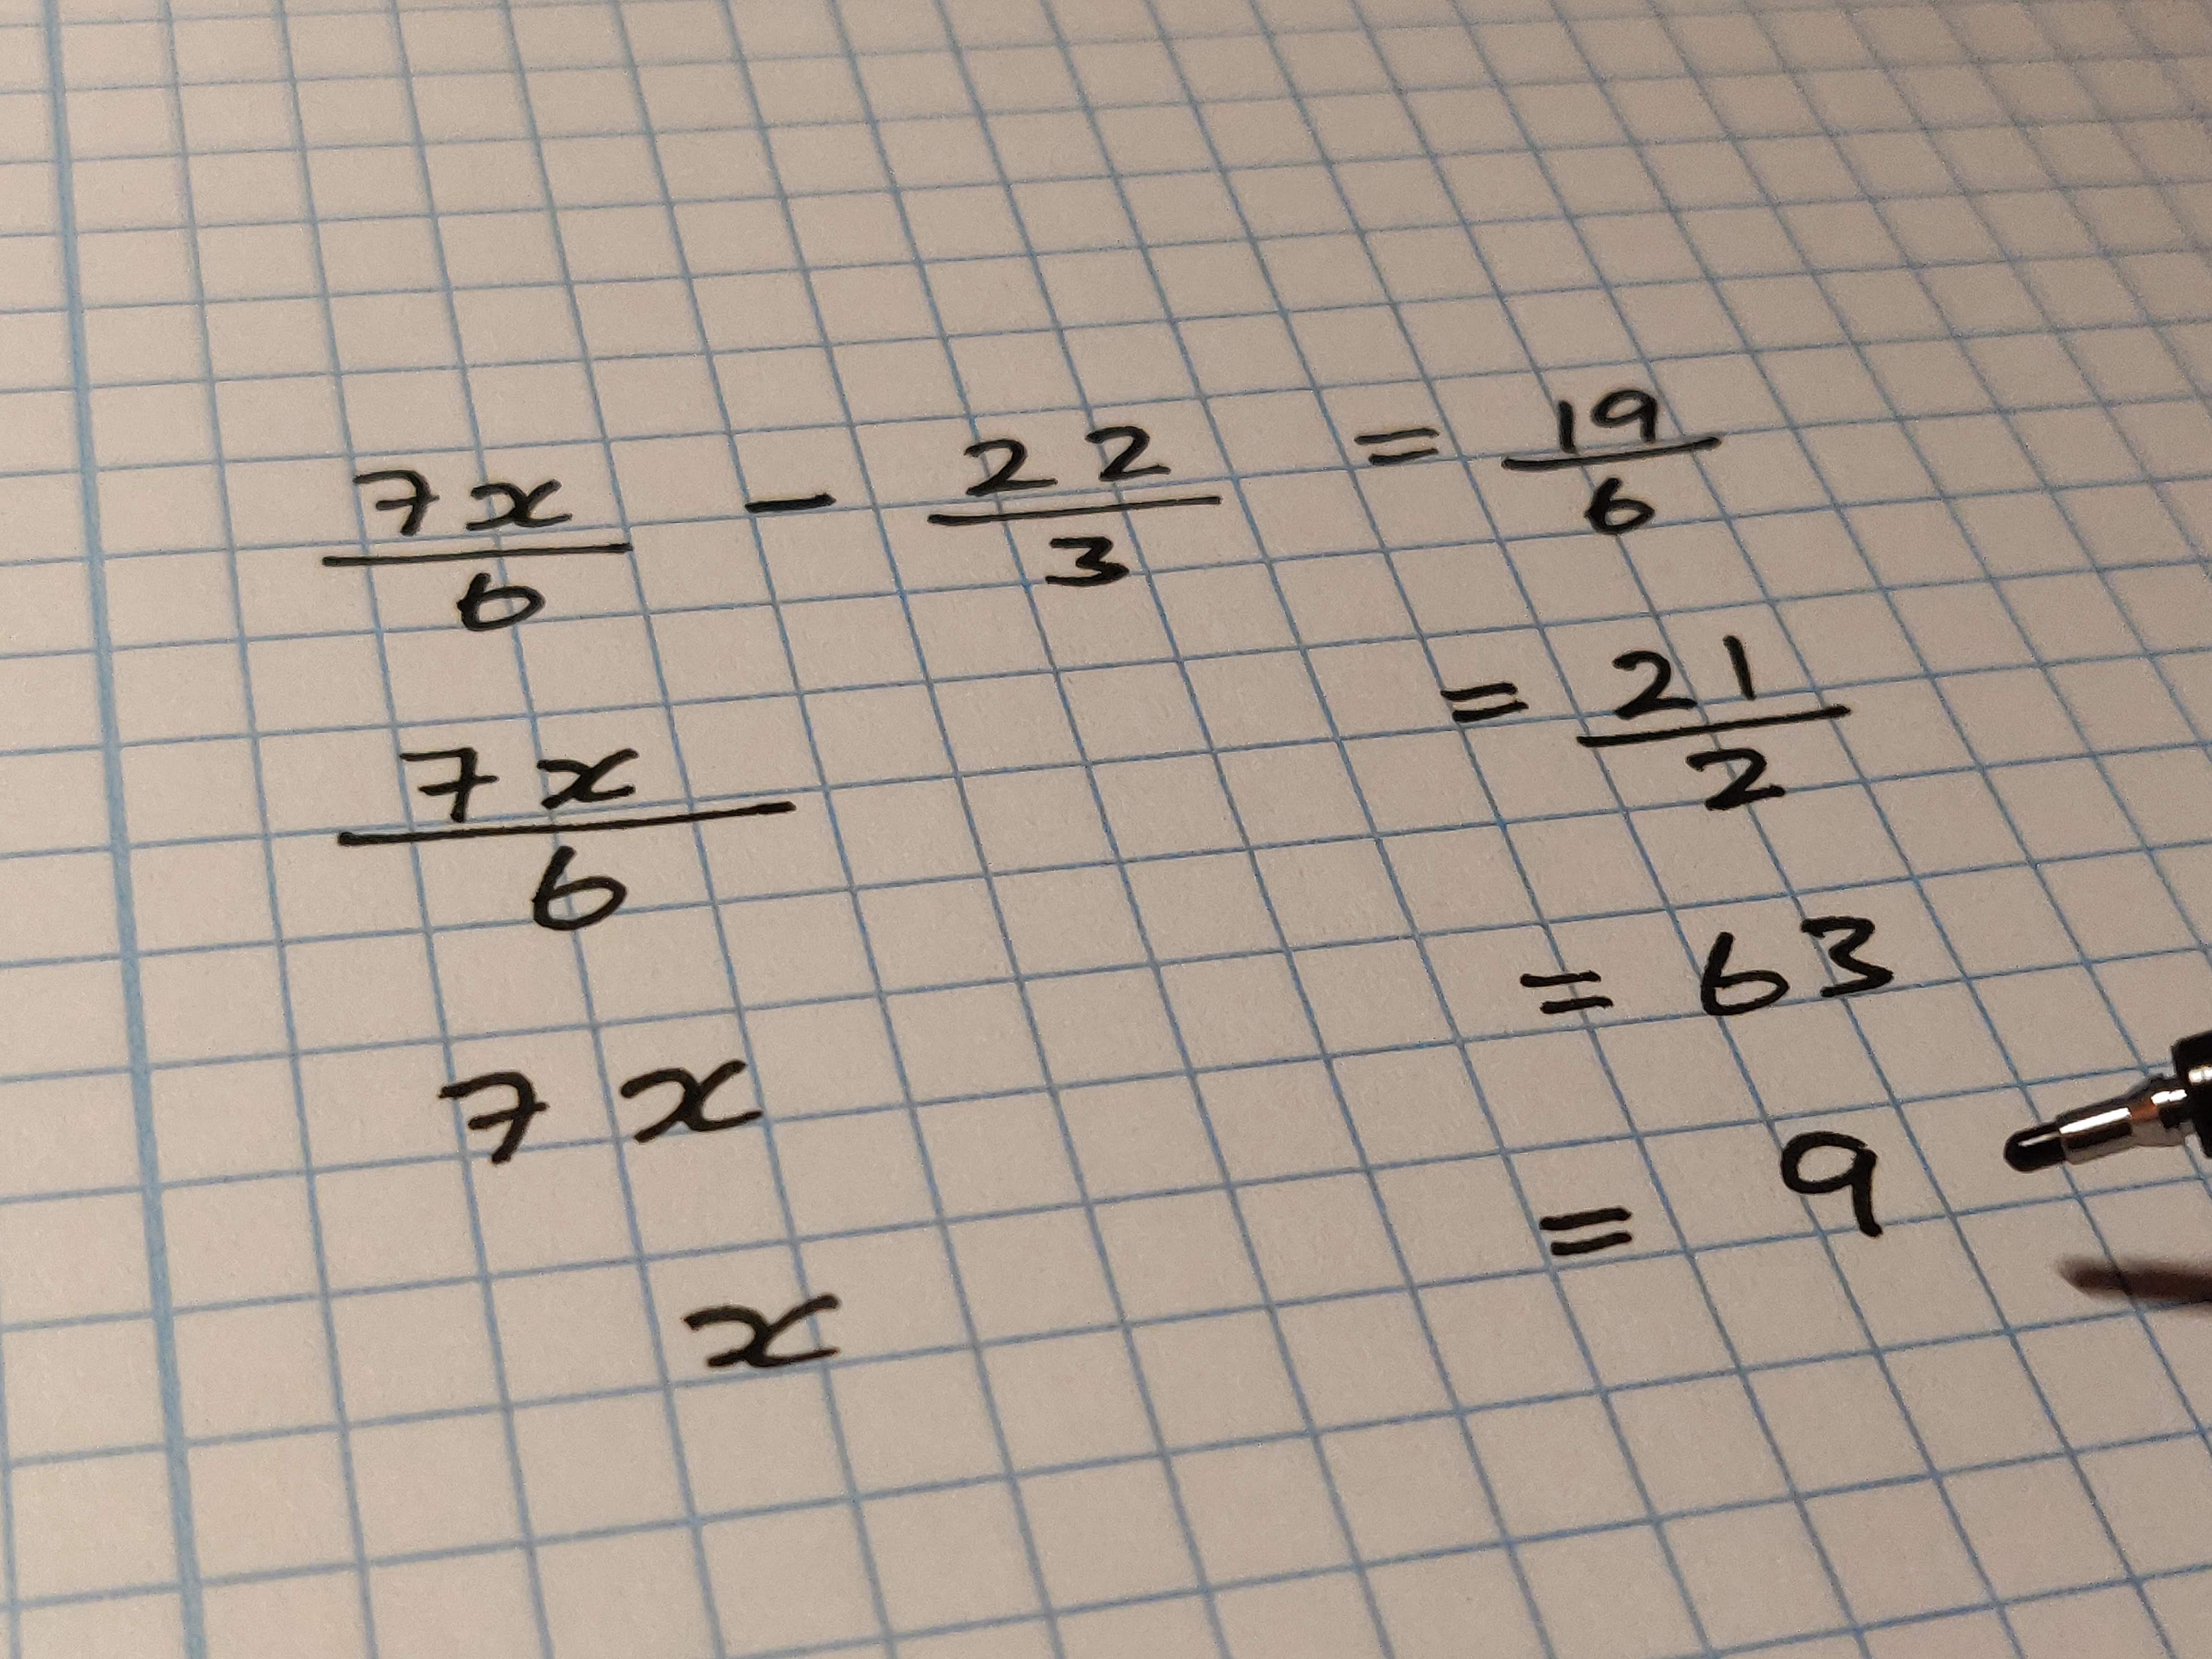 7x/6 - 22/3 = 19/6
7x/6 = 21/2
7x = 63
x = 9